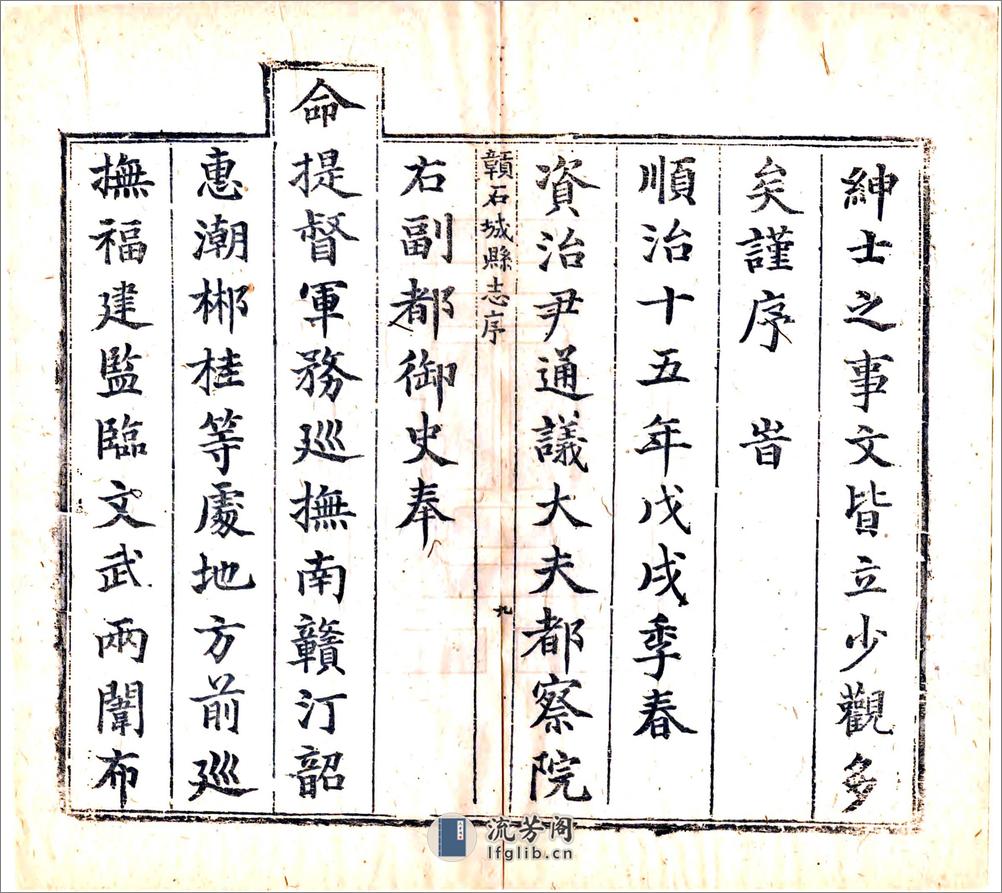 紳士之事文皆立少觀多
矣謹序　旹
順治十五年戊戌季春
資治尹通議大夫都察院
贛石城縣志序
九
右副都御史奉
命提督軍務廵撫南贛汀韶
惠潮郴桂等處地方前廵
撫福建監臨文武兩闈布
流芳阁
lfglib.cn